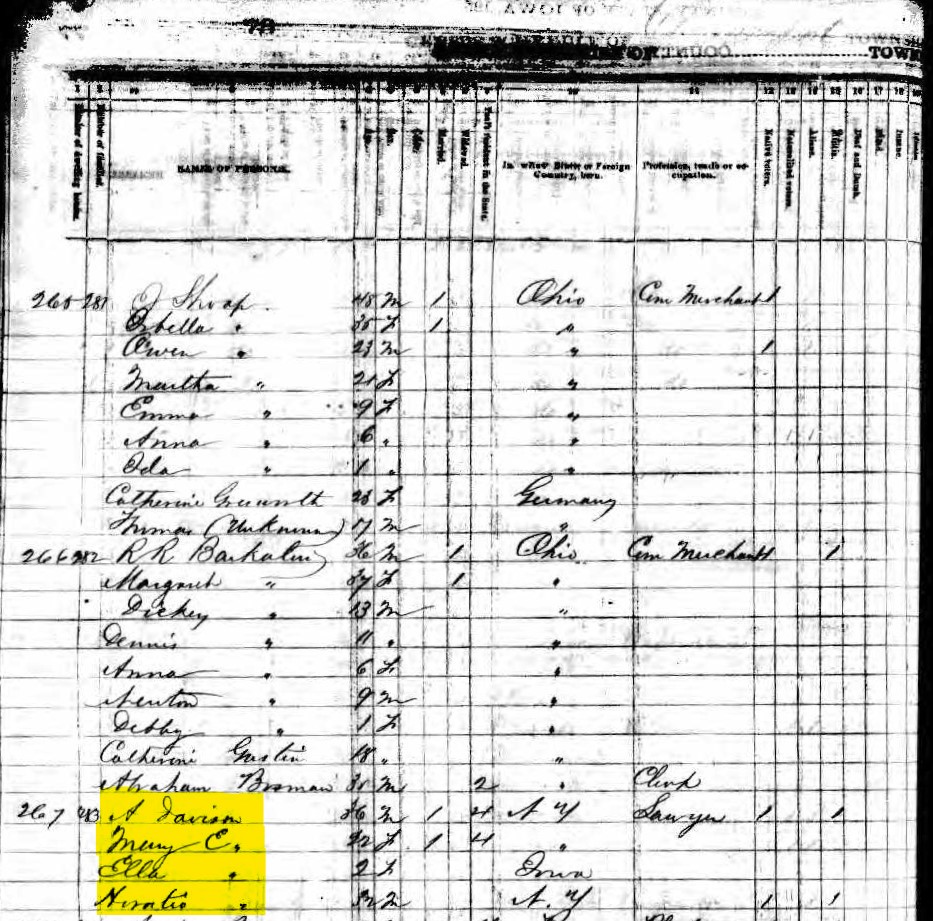 79
COUNTY
TOWN
NAMES OF PERSONS.
Age. Sex. Color. Married. Widowed. Years resident in the State. In what State or Foreign Country, born. Profession, trade or occupation. Native voters. Naturalized voters. Aliens. Militia. Deaf and Dumb. Blind. Insane.
J Shoap 48 M 1 Ohio Com Merchant 1
" 35 F 1 "
Owen " 23 M " 1
Martha " 21 F "
Emma " 9 F "
Anna " 6 " "
Ida " 1 " "
Catherine 23 F Germany
(Unknown) 17 M "
266 282 R R Barkalow 36 M 1 Ohio Com Merchant 1 1
Margaret " 37 F 1 "
Dickey " 13 M "
Dennis " 11 " "
Anna " 6 F "
Newton " 9 M "
Debby " 1 F "
Catherine Gustin 18 " "
Abraham Bosman 30 M 2 " Clerk
267 283 A Davison 36 M 1 4 N Y Lawyer 1 1
Mary E " 22 F 1 4 "
Ella " 2 F Iowa
Horatio " 32 M N. Y 1 1